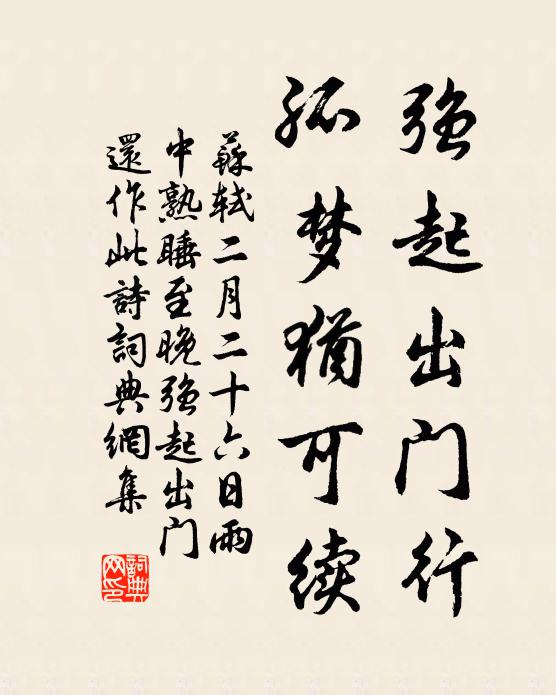 强起出门行
孤梦犹可续
蘇軾二月二十六日雨
中熟睡至晚强起出门
還作此詩詞典網集
詞典
网印